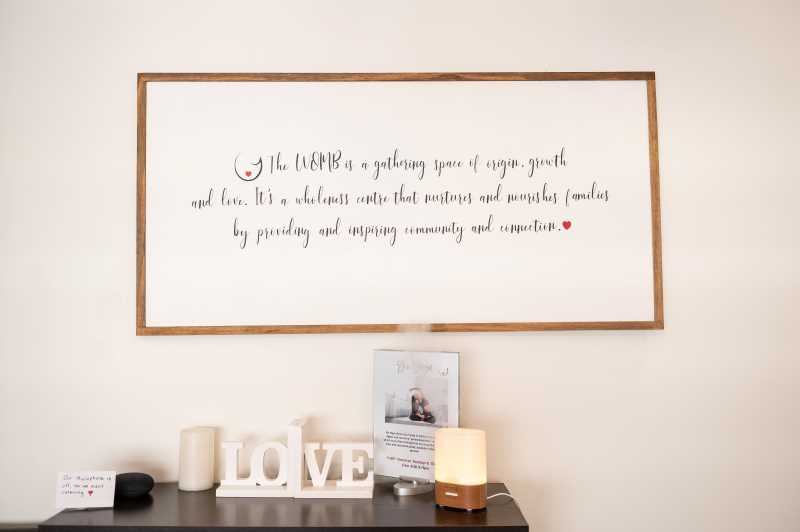 The WOMB is a gathering space of origin, growth
and love. It's a wholeness centre that nurtures and nourishes families
by providing and inspiring community and connection.
LOVE
Our Microphone is
off, so we aren't
listening